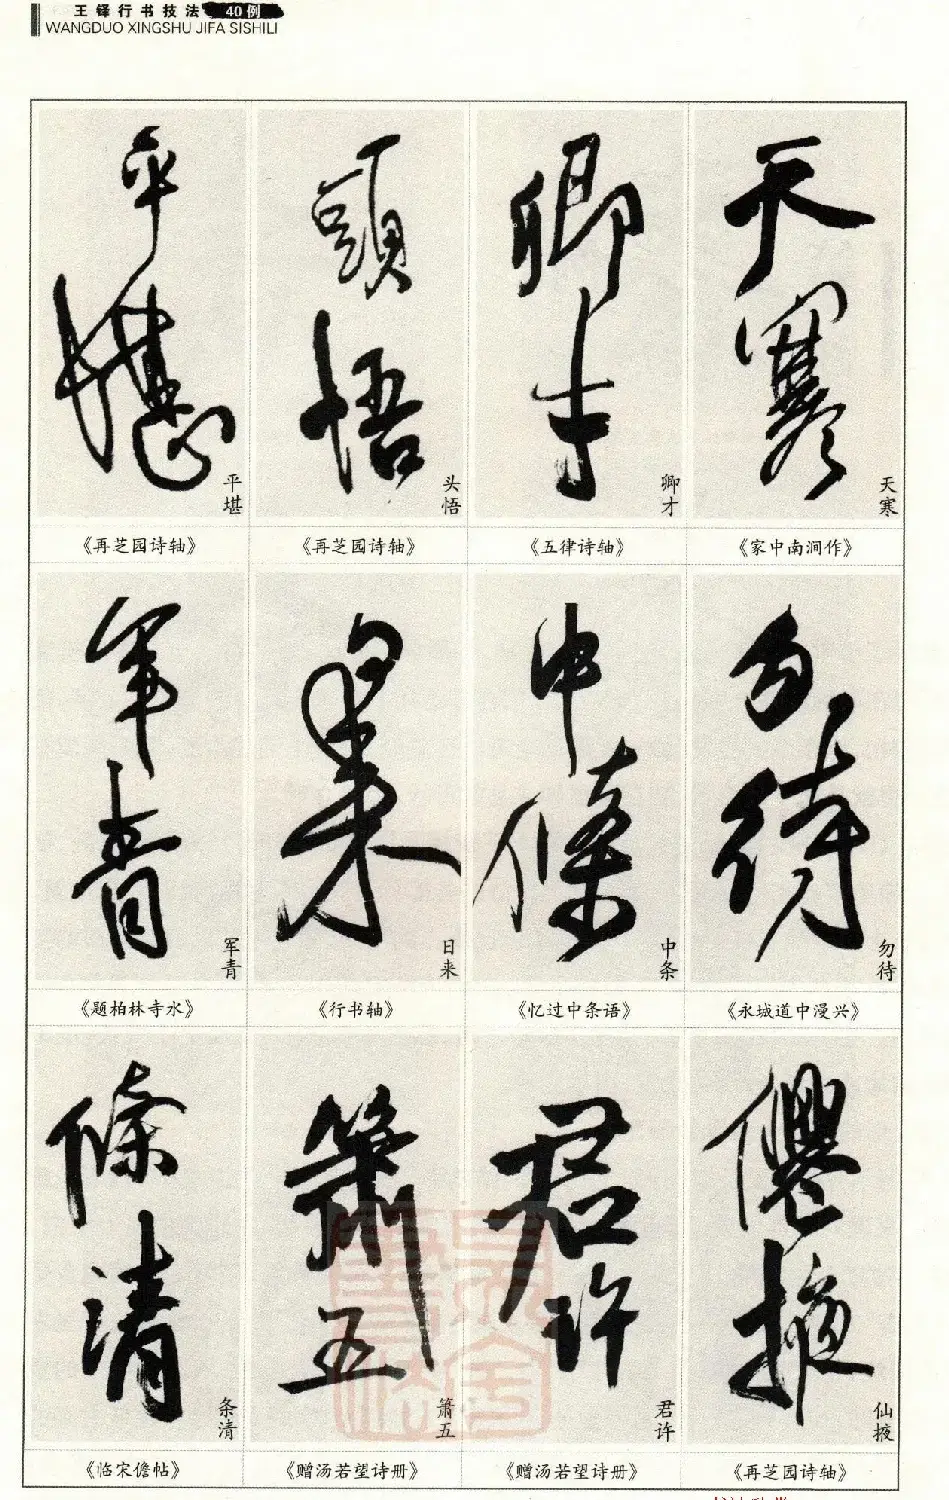 王铎行书技法 40例
WANGDUO XINGSHU JIFA SISHILI
平堪
頭悟
卿才
天寒
平堪
头悟
卿才
天寒
《再芝园诗轴》
《再芝园诗轴》
《五律诗轴》
《家中南涧作》
軍青
日来
中條
勿待
军青
日来
中条
勿待
《题柏林寺水》
《行书轴》
《忆过中条语》
《永城道中漫兴》
條清
箫五
君許
僊掖
条清
箫五
君许
仙掖
《临宋儋帖》
《赠汤若望诗册》
《赠汤若望诗册》
《再芝园诗轴》